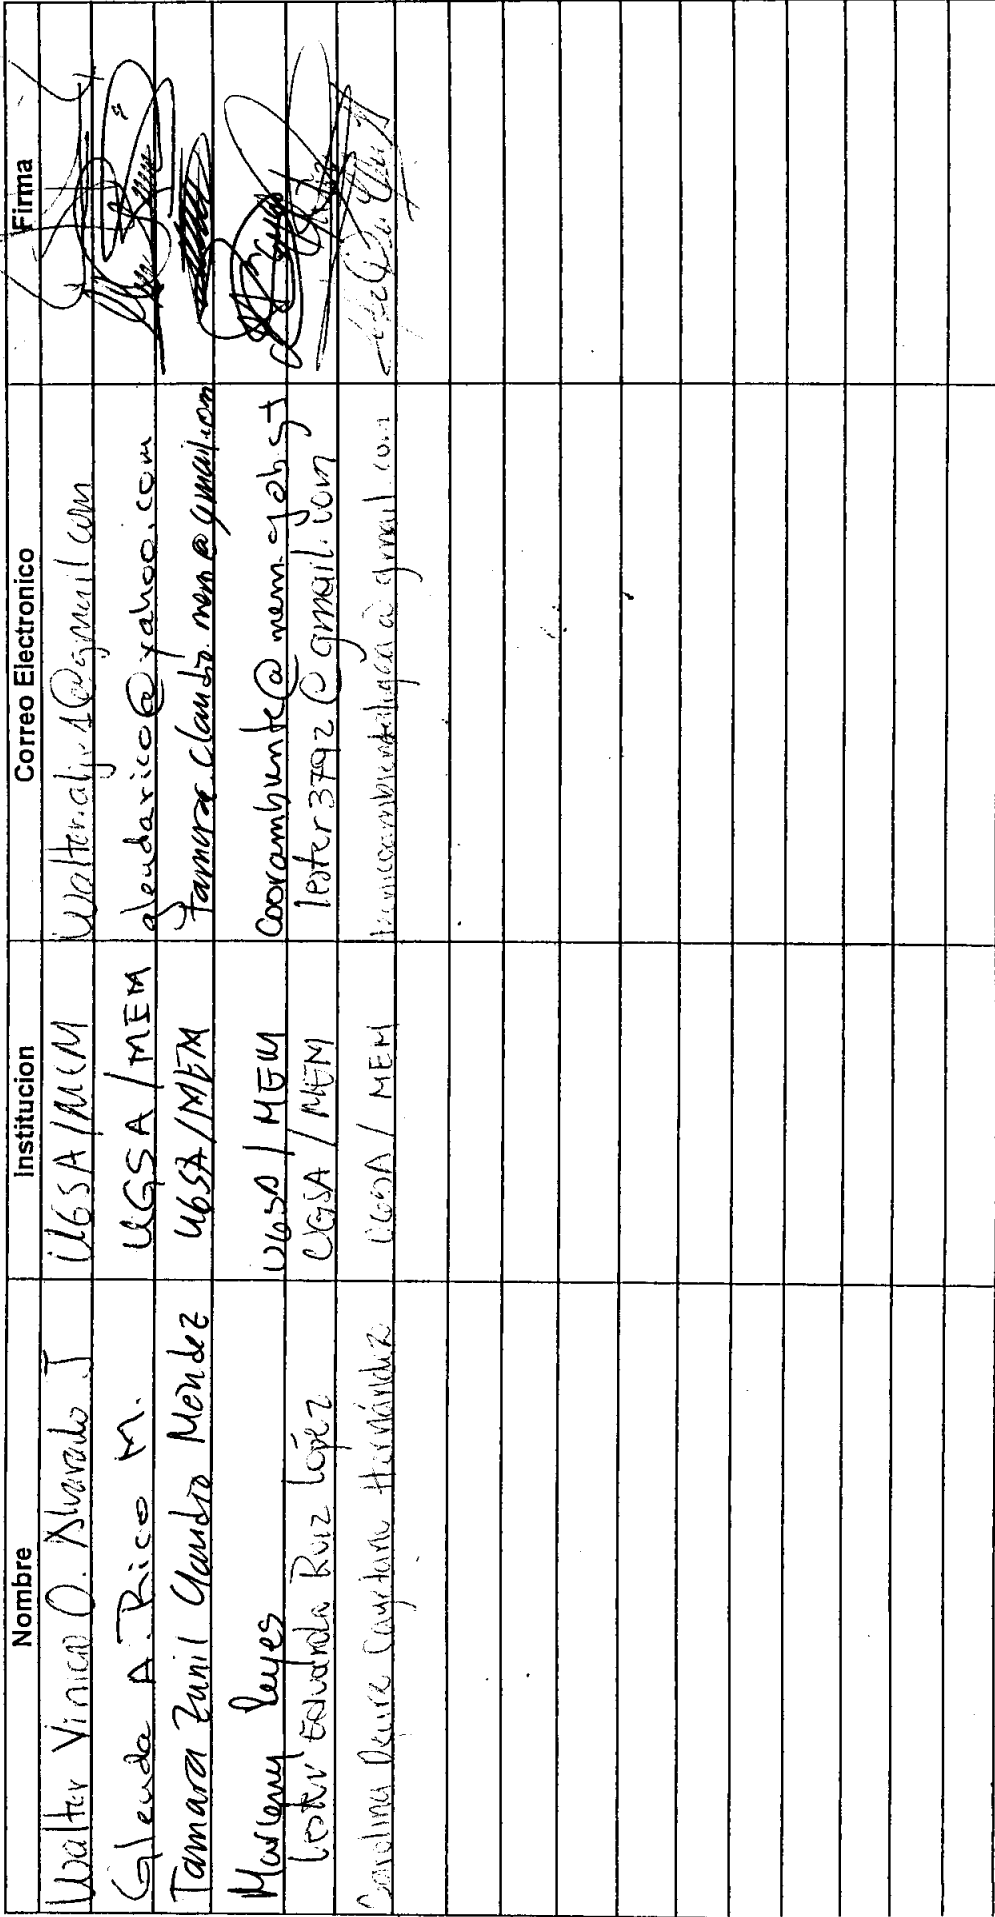 Nombre Institucion Correo Electronico Firma
Walter Vinicio O. Alvarado J UGSA/MEM
Glenda A. Rico M. UGSA/MEM glendarico@yahoo.com
Tamara Zunil Claudio Mendez UGSA/MEM tamara.claudio.mem@gmail.com
Marleny Reyes UGSA/MEM @mem.gob.gt
Lester Eduardo Ruiz López UGSA/MEM lester3792@gmail.com
Carolina Cayetano Hernández UGSA/MEM